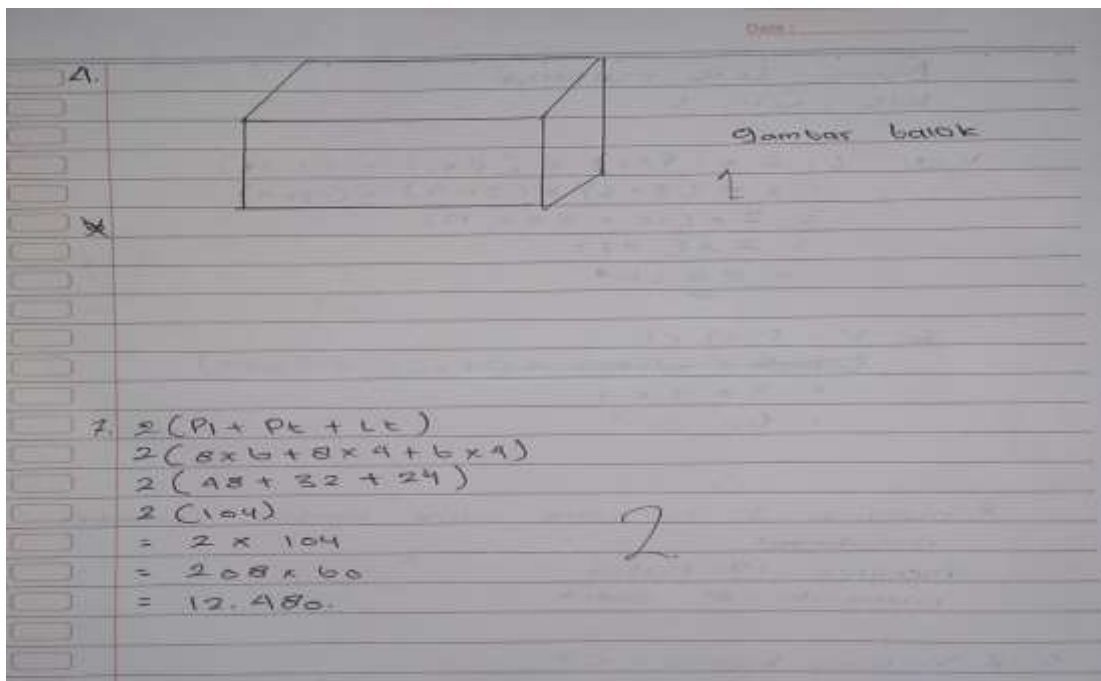 Date :
4.
gambar balok
1
7. 2 (Pl + Pt + Lt)
2 ( 8 x 6 + 8 x 4 + 6 x 4 )
2 ( 48 + 32 + 24 )
2 (104)
= 2 x 104
2
= 208 x 60
= 12.480.